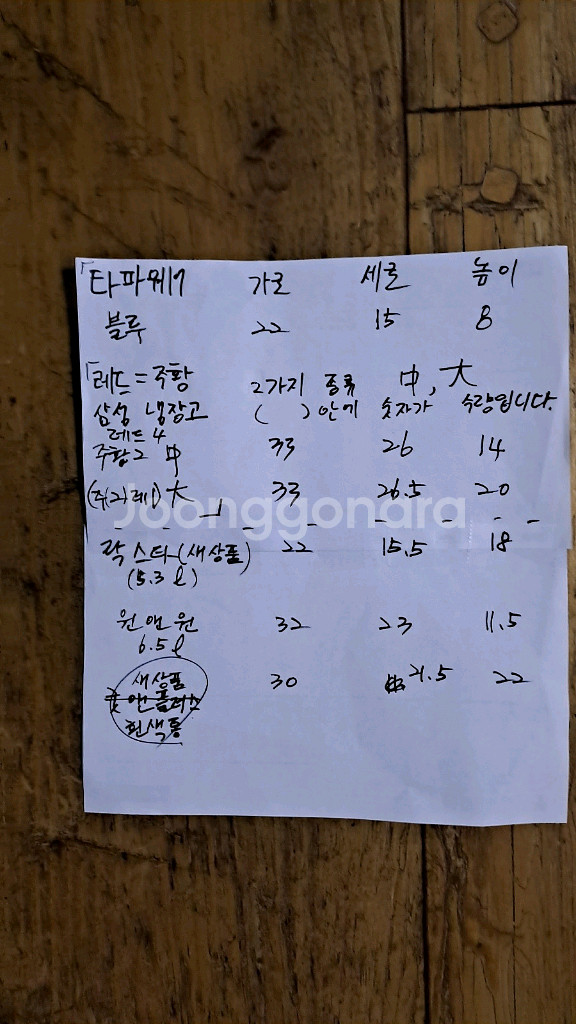 「타파웨어 가로 세로 높이
블루 22 15 8
「레드=주황 2가지 종류 中, 大
삼성 냉장고 ( ) 안에 숫자가 수량입니다.
레드4
주황2 中 33 26 14
(주(2)레1) 大 33 26.5 20
락스타(새상품) 22 15.5 18
(5.3ℓ)
원앤원 32 23 11.5
6.5ℓ
새상품 30 21.5 22
앤플러스
흰색통
Joonggonara